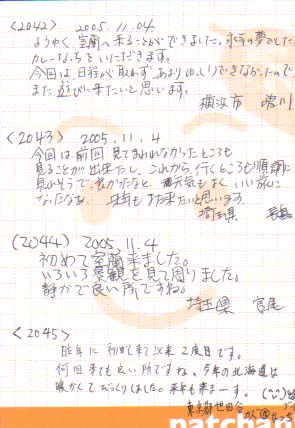 <2042> 2005.11.04
ようやく、室蘭へ来ることができました。永年の夢でした。
カレーなっちをいただきます。
今回は、日程が取れず、あまりゆっくりできなかったので
また、遊びに来たいと思います。
横浜市 増川
<2043> 2005.11.4
今回は前回見てまわれなかったところも
見ることが出来たし、これから行くところも順調に
見れそうで、良かったなと、天気もよく、いい旅に
なったなぁ、来年もまた来たいと思います。
埼玉県
(2044) 2005.11.4
初めて室蘭来ました。
いろいろ景観を見て周りました。
静かで良い所ですね。
埼玉県 宮尾
<2045>
昨年に初めて来て以来2度目です。
何回来ても良い所ですね。今年の北海道は
暖かくてびっくりしました。来年も来まーす。(^^)
東京都世田谷
patchau